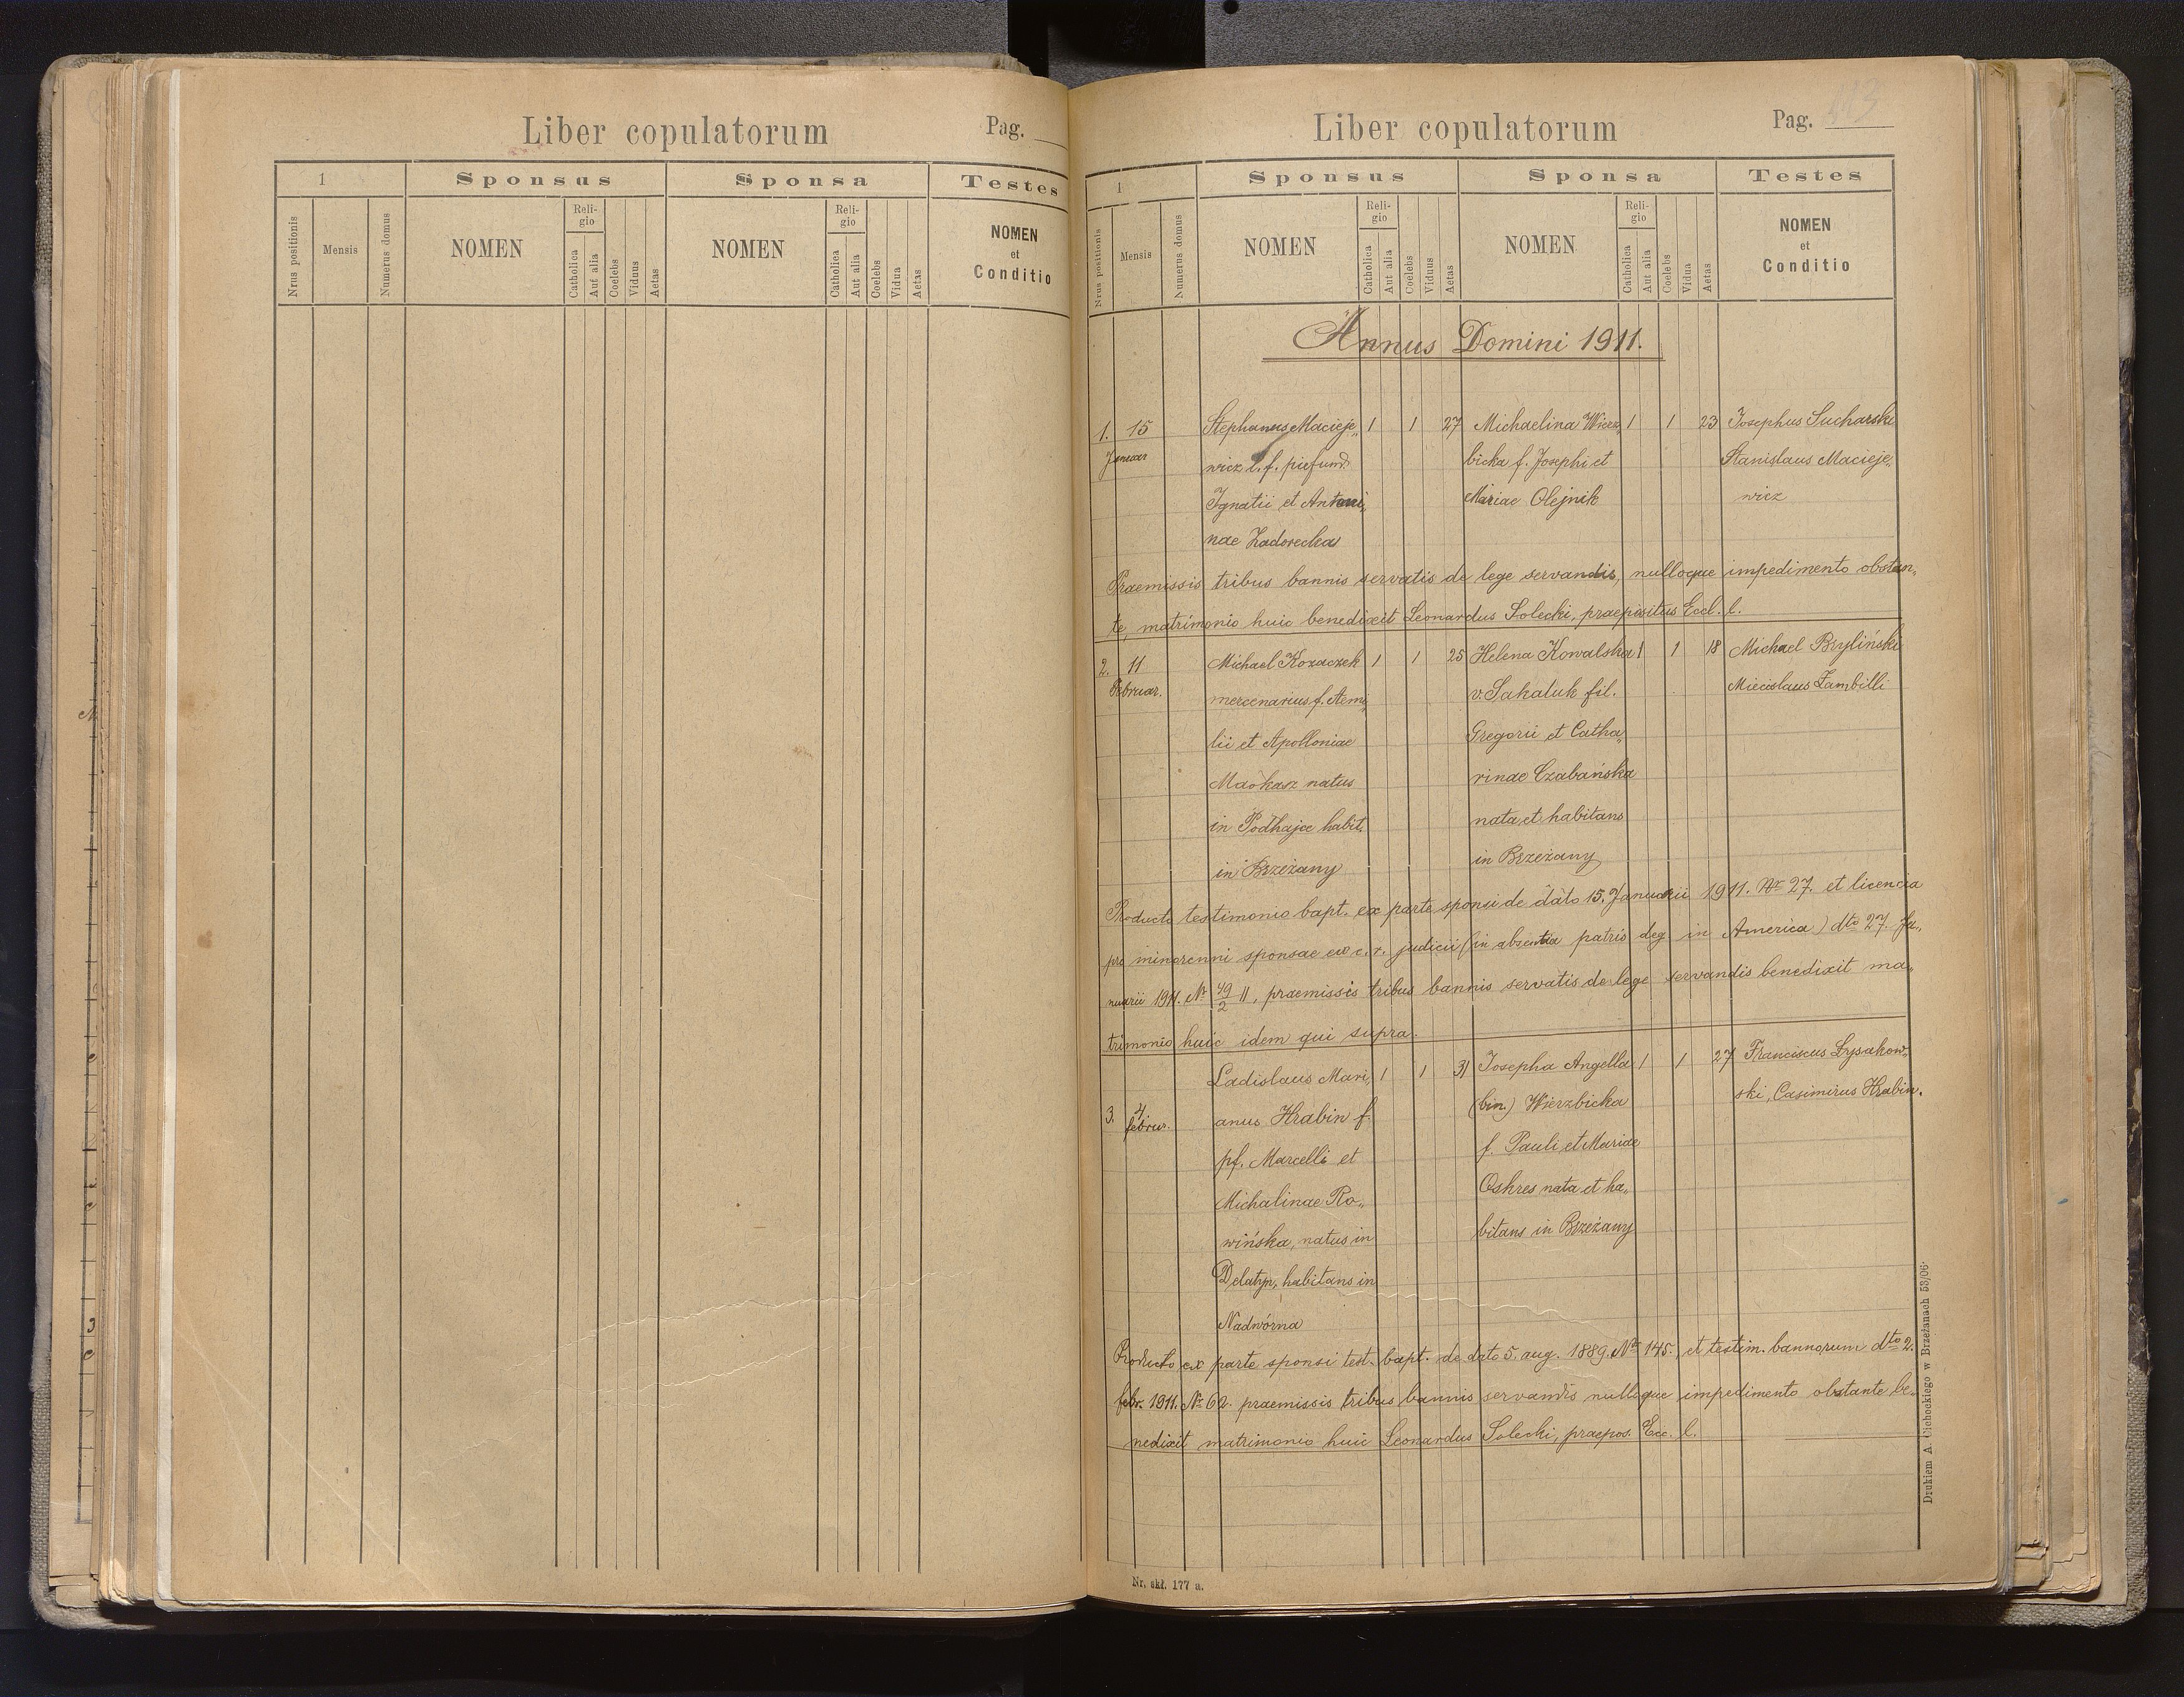 Liber copulatorum
Pag.
1
Sponsus
Sponsa
Testes
Nrus positionis
Mensis
Numerus domus
NOMEN
Reli-
gio
Catholica
Aut alia
Coelebs
Viduus
Aetas
NOMEN
Reli-
gio
Catholica
Aut alia
Coelebs
Vidua
Aetas
NOMEN
et
Conditio
Liber copulatorum
Pag. 443
1
Sponsus
Sponsa
Testes
Nrus positionis
Mensis
Numerus domus
NOMEN
Reli-
gio
Catholica
Aut alia
Coelebs
Viduus
Aetas
NOMEN
Reli-
gio
Catholica
Aut alia
Coelebs
Vidua
Aetas
NOMEN
et
Conditio
Annus Domini 1911.
1. 15 Stephanus Macieje„ 1 1 27 Michaelina Wierz„ 1 1 23 Josephus Sucharski
Januar wicz l. f. piefund. bicka f. Josephi et Stanislaus Macieje„
Ignatii et Antoni„ Mariae Olejnik wicz
nae Zadorecka
Praemissis tribus bannis servatis de lege servandis, nulloque impedimento obstan„
te, matrimonio huic benedixit Leonardus Solecki, praepositus Eccl. l.
2. 11 Michael Kozaczek 1 1 25 Helena Kowalska 1 1 18 Michael Bryliński
Februar. mercenarius f. Aemi„ v. Sakaluk fil. Miecislaus Zambilli
lii et Apolloniae Gregorii et Catha„
Maokasz natus rinae Czabańska
in Podhajce habit. nata et habitans
in Brzeżany in Brzeżany
Producto testimonio bapt. ex parte sponsi de dato 15. Januarii 1911. Nr 27. et licencia
pro minorenni sponsae ex c. r. judicii (in absentia patris deg in America) dto 27. Ja„
nuarii 1911. Nr 49/2 11, praemissis tribus bannis servatis de lege servandis benedixit ma„
trimonio huic idem qui supra.
Ladislaus Mari„ 1 1 31 Josepha Angella 1 1 27 Franciscus Łysakow„
3. 4 anus Hrabin f. (bin.) Wierzbicka ski, Casimirus Hrabin.
febru. pf. Marcelli et f. Pauli et Mariae
Michalinae Ro„ Oskres nata et ha„
wińska, natus in bitans in Brzeżany
Delatyn, habitans in
Nadwórna
Producto ex parte sponsi test. bapt. de dato 5. aug. 1889. Nr 145. et testim. bannorum dto 2.
febr. 1911. Nr 62. praemissis tribus bannis servandis nulloque impedimento obstante be„
nedixit matrimonio huic Leonardus Solecki, praepos. Ecc. l.
Nr. skł. 177 a.
Drukiem A. Cichockiego w Brzeżanach 53/06.